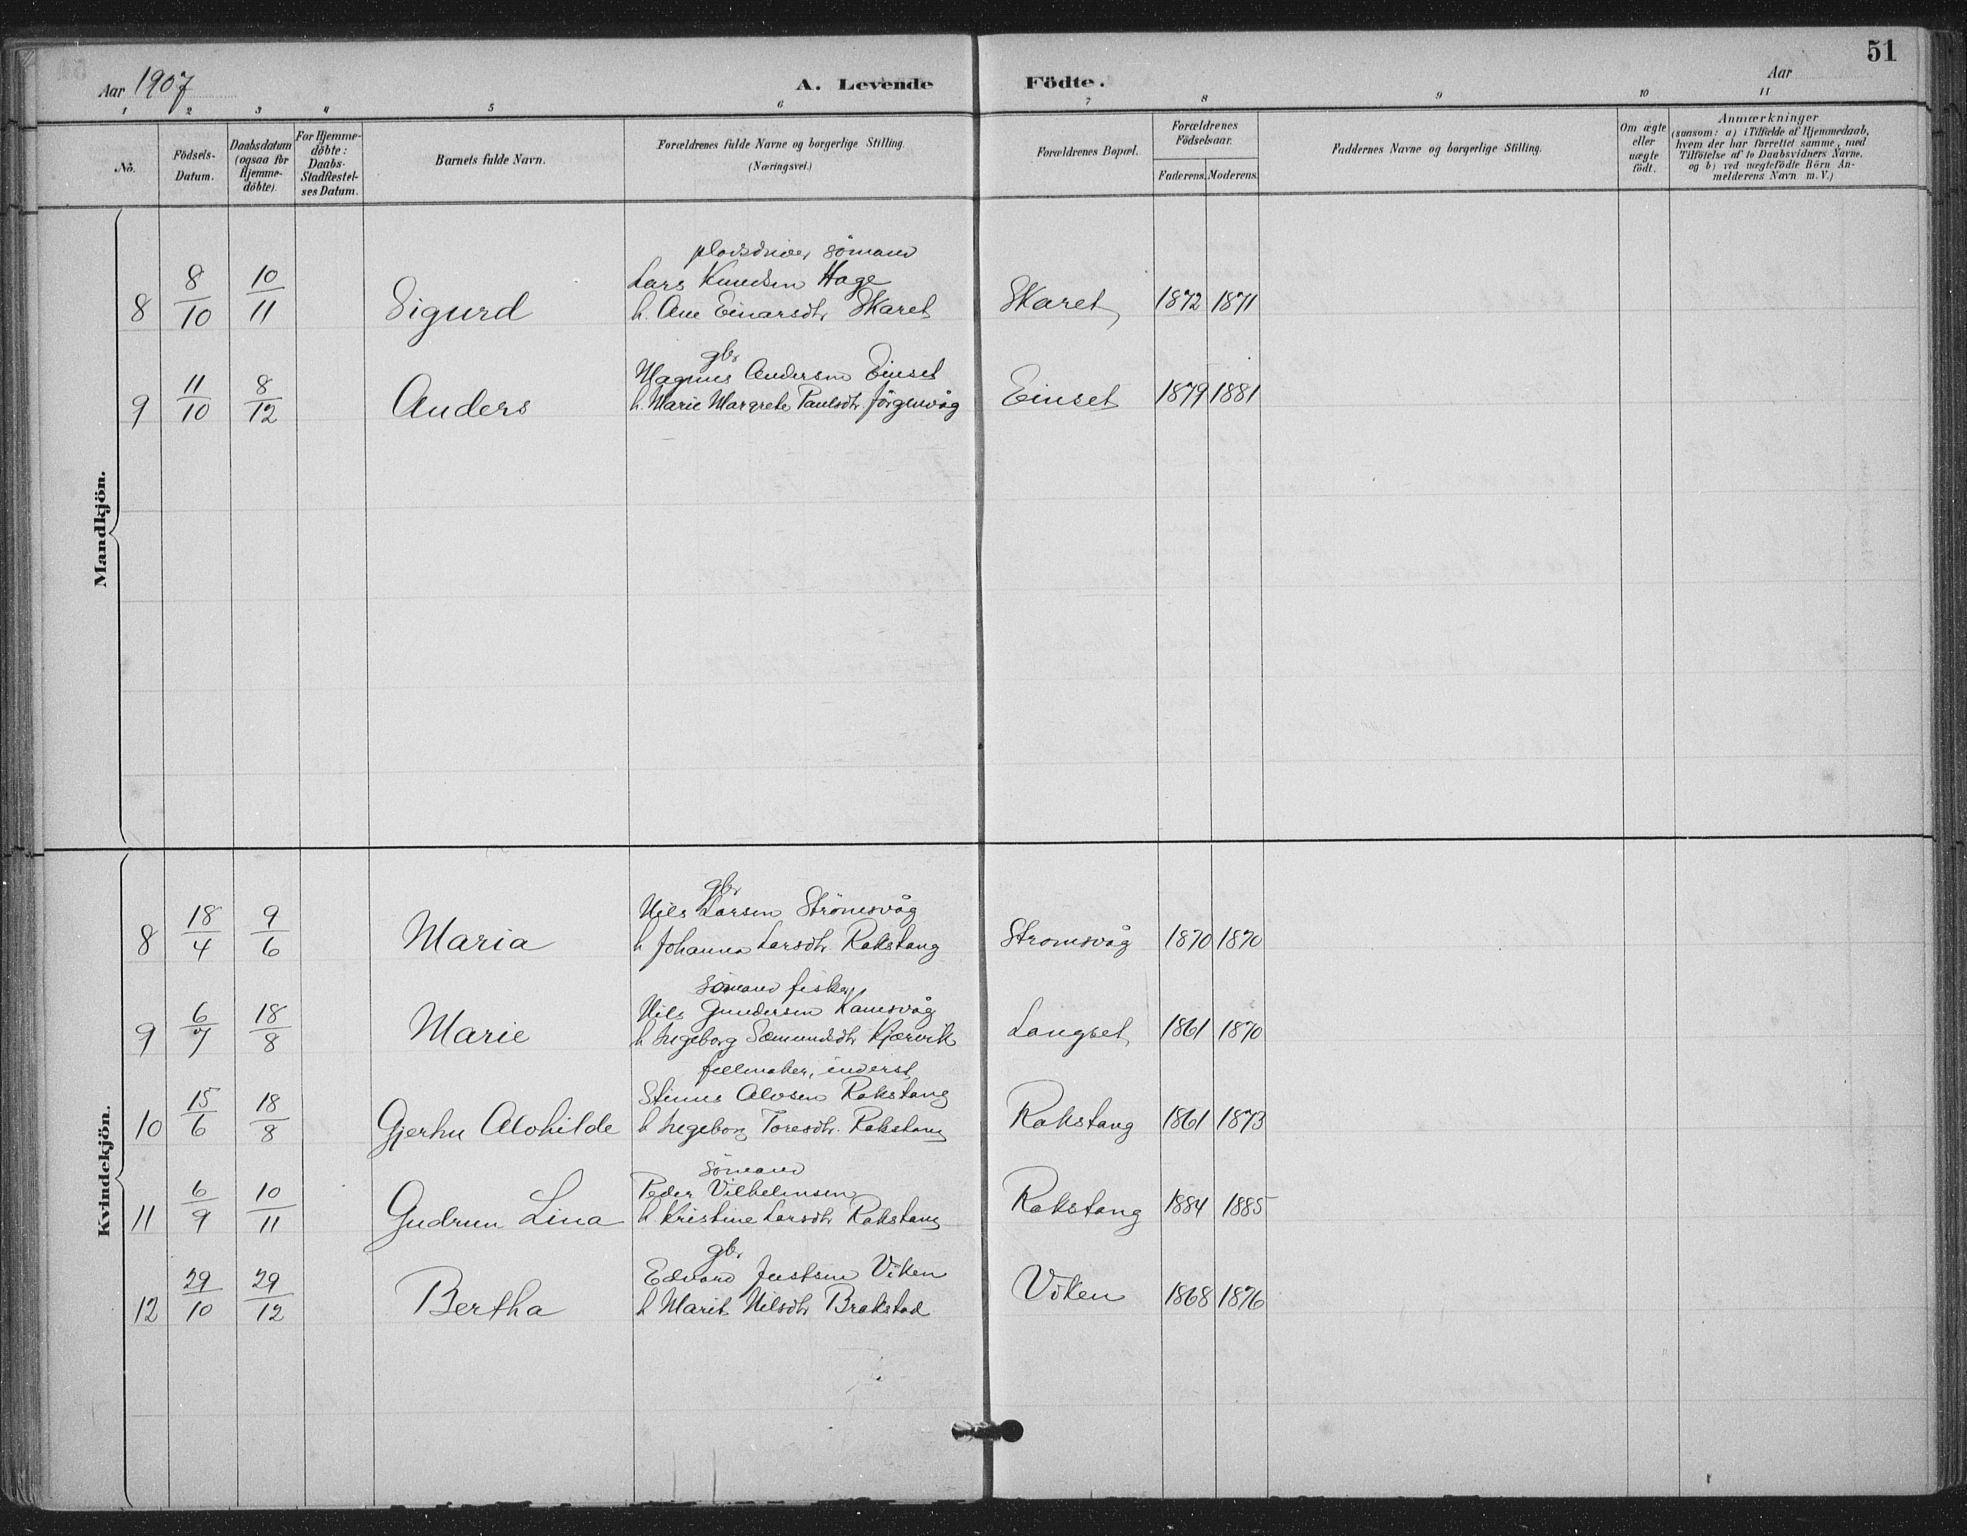 51
Aar 1907 A. Levende Födte. Aar
1 2 3 4 5 6 7 8 9 10 11
No. Födsels-Datum. Daabsdatum (ogsaa for Hjemme-döbte). For Hjemme-döbte: Daabs-Stadfæstel-ses Datum. Barnets fulde Navn. Forældrenes fulde Navne og borgerlige Stilling. (Næringsvei.) Forældrenes Bopæl. Forældrenes Födselsaar. Faderens. Moderens. Faddernes Navne og borgerlige Stilling. Om ægte eller uægte födt. Anmærkninger (saasom: a) i Tilfælde af Hjemmedaab, hvem der har forrettet samme, med Tilföielse af to Daabsvidners Navne, og b) ved uægtefödte Börn An-melderens Navn m. V.)
Mandkjön.
pladsdriver sömand
Lars Knudsen Hage
8 8/10 10/11 Sigurd h. Ane Einarsdtr Skaret Skaret 1872 1871
gbr
Magnus Andersen Einset
9 11/10 8/12 Anders h. Marie Margrete Paulsdtr. Jörgenvåg Einset 1879 1881
Kvindekjön.
gbr
Nils Larsen Strömsvåg
8 18/4 9/6 Maria h Johanna Larsdtr Rakstang Stromsvåg 1870 1870
sömand fisker
Nils Gundersen Kansvåg
9 6/7 18/8 Marie h Ingeborg Sæmundsdtr Kjørvik Langset 1861 1870
fellmaker, inderst
Stinus Alvsen Rakstang
10 15/6 18/8 Gjertru Alvhilde h Ingeborg Toresdtr. Rakstang Rakstang 1861 1873
sömand
Peder Vilhelmsen
11 6/9 10/11 Gudrun Lina h Kristine Larsdtr Rakstang Rakstang 1884 1885
gbr
Edvard Justsen Viken
12 29/10 29/12 Bertha h Marit Nilsdtr Brakstad Viken 1868 1876